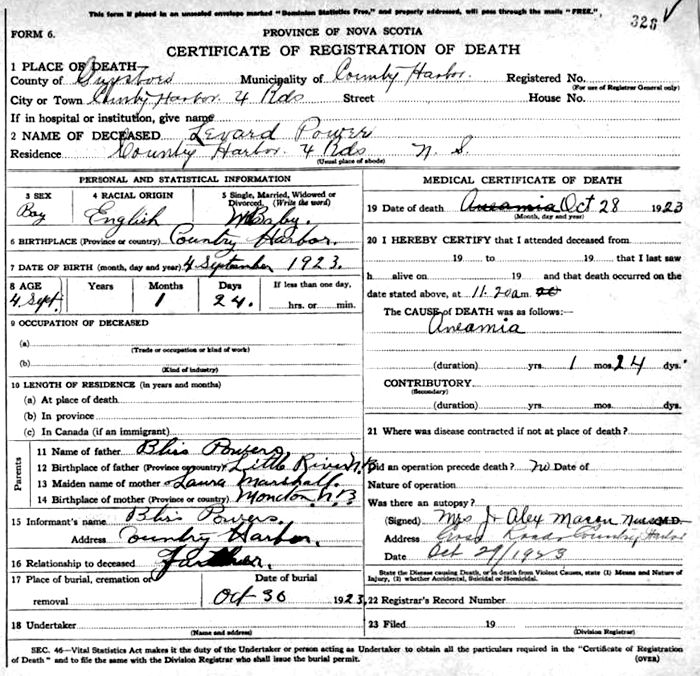 This form if placed in an unsealed envelope marked "Dominion Statistics Free," and properly addressed, will pass through the mails "FREE."
326
FORM 6.
PROVINCE OF NOVA SCOTIA
CERTIFICATE OF REGISTRATION OF DEATH
1 PLACE OF DEATH
County of Guysboro Municipality of County Harbor. Registered No.
(For use of Registrar General only)
City or Town County Harbor 4 Rds Street House No.
If in hospital or institution, give name
2 NAME OF DECEASED Levard Power
Residence Country Harbor 4 Rds N. S.
(Usual place of abode)
PERSONAL AND STATISTICAL INFORMATION
3 SEX
Boy
4 RACIAL ORIGIN
English
5 Single, Married, Widowed or Divorced, (Write the word)
Baby.
6 BIRTHPLACE (Province or country) Country Harbor.
7 DATE OF BIRTH (month, day and year) 4 September 1923.
8 AGE Years Months Days If less than one day,
4 Sept. 1 24. hrs. or min.
9 OCCUPATION OF DECEASED
(a)
(Trade or occupation or kind of work)
(b)
(Kind of industry)
10 LENGTH OF RESIDENCE (in years and months)
(a) At place of death
(b) In province
(c) In Canada (if an immigrant)
Parents
11 Name of father Blis Powers
12 Birthplace of father (Province or country) Little River N.B
13 Maiden name of mother Laura Marshall.
14 Birthplace of mother (Province or country) Moncton N.B
15 Informant's name Blis Powers,
Address Country Harbor.
16 Relationship to deceased Farther.
17 Place of burial, cremation or removal Date of burial
Oct 30 1923,
18 Undertaker
(Name and address)
MEDICAL CERTIFICATE OF DEATH
19 Date of death Aneamia Oct 28 1923
(Month, day and year)
20 I HEREBY CERTIFY that I attended deceased from
19 to 19 that I last saw
h alive on 19 and that death occurred on
date stated above, at 11.20 am.
The CAUSE of DEATH was as follows:—
Aneamia
(duration) yrs. 1 mos. 24 dys.
CONTRIBUTORY
(Secondary)
(duration) yrs. mos. dys.
21 Where was disease contracted if not at place of death?
Did an operation precede death? no Date of
Nature of operation
Was there an autopsy?
(Signed) Mrs J Alex Mason Nurse M.D.
Address Cross Roads Country Harbor
Date Oct 29/1923
State the Disease causing Death, or in death from Violent Causes, state (1) Means and Nature of Injury, (2) whether Accidental, Suicidal or Homicidal.
22 Registrar's Record Number
23 Filed 19
(Division Registrar)
SEC. 46—Vital Statistics Act makes it the duty of the Undertaker or person acting as Undertaker to obtain all the particulars required in the "Certificate of Registration
of Death" and to file the same with the Division Registrar who shall issue the burial permit. (OVER)